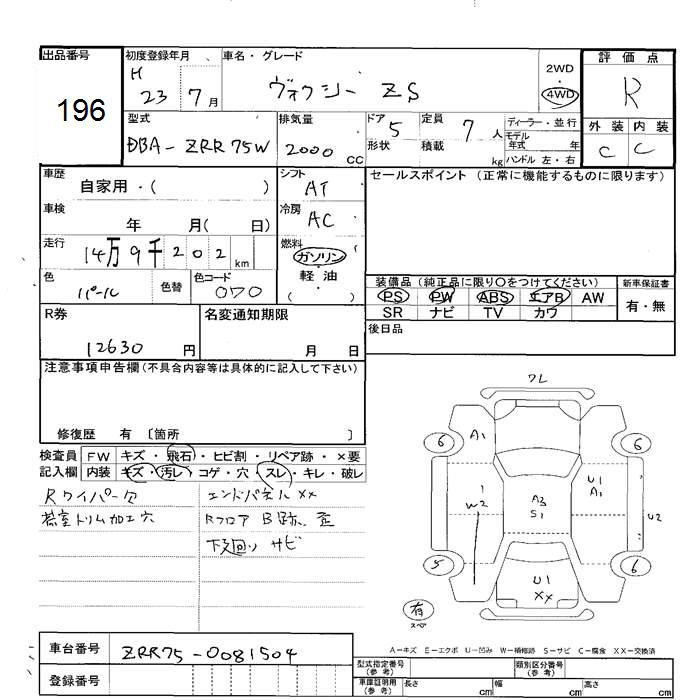 出品番号
196
初度登録年月
H 23 7月
車名・グレード
ヴォクシー ZS
2WD
4WD
評価点
R
型式
DBA-ZRR75W
排気量
2000 cc
ドア 5
形状
定員 7人
積載 kg
ディーラー・並行
モデル年式 年
ハンドル 左・右
外装 内装
C C
車歴
自家用・( )
シフト
AT
セールスポイント (正常に機能するものに限ります)
車検
年 月( 日)
冷房
AC
走行
14万9千202km
燃料
ガソリン
軽・油
( )
色
パール
色替
色コード
070
装備品 (純正品に限り○をつけてください)
新車保証書
PS PW ABS エアB AW
SR ナビ TV カワ
有・無
R券
12630 円
名変通知期限
月 日
後日品
注意事項申告欄(不具合内容等は具体的に記入して下さい)
修復歴 有 〔箇所 〕
検査員
記入欄
FW キズ・飛石・ヒビ割・リペア跡・×要
内装 キズ・汚レ・コゲ・穴・スレ・キレ・破レ
Rワイパー欠
エンドパネルXX
トリム加工穴
Rフロア B跡、歪
下回り サビ
ワレ
6
A1
6
1
W2
A3
S1
U1
A1
U2
5
U1
XX
6
有
スペア
A-キズ E-エクボ U-凹み W-補修跡 S-サビ C-腐食 XX-交換済
車台番号
ZRR75-0081504
登録番号
型式指定番号
(参考)
類別区分番号
(参考)
車庫証明用
(参考)
長さ cm
幅 cm
高さ cm